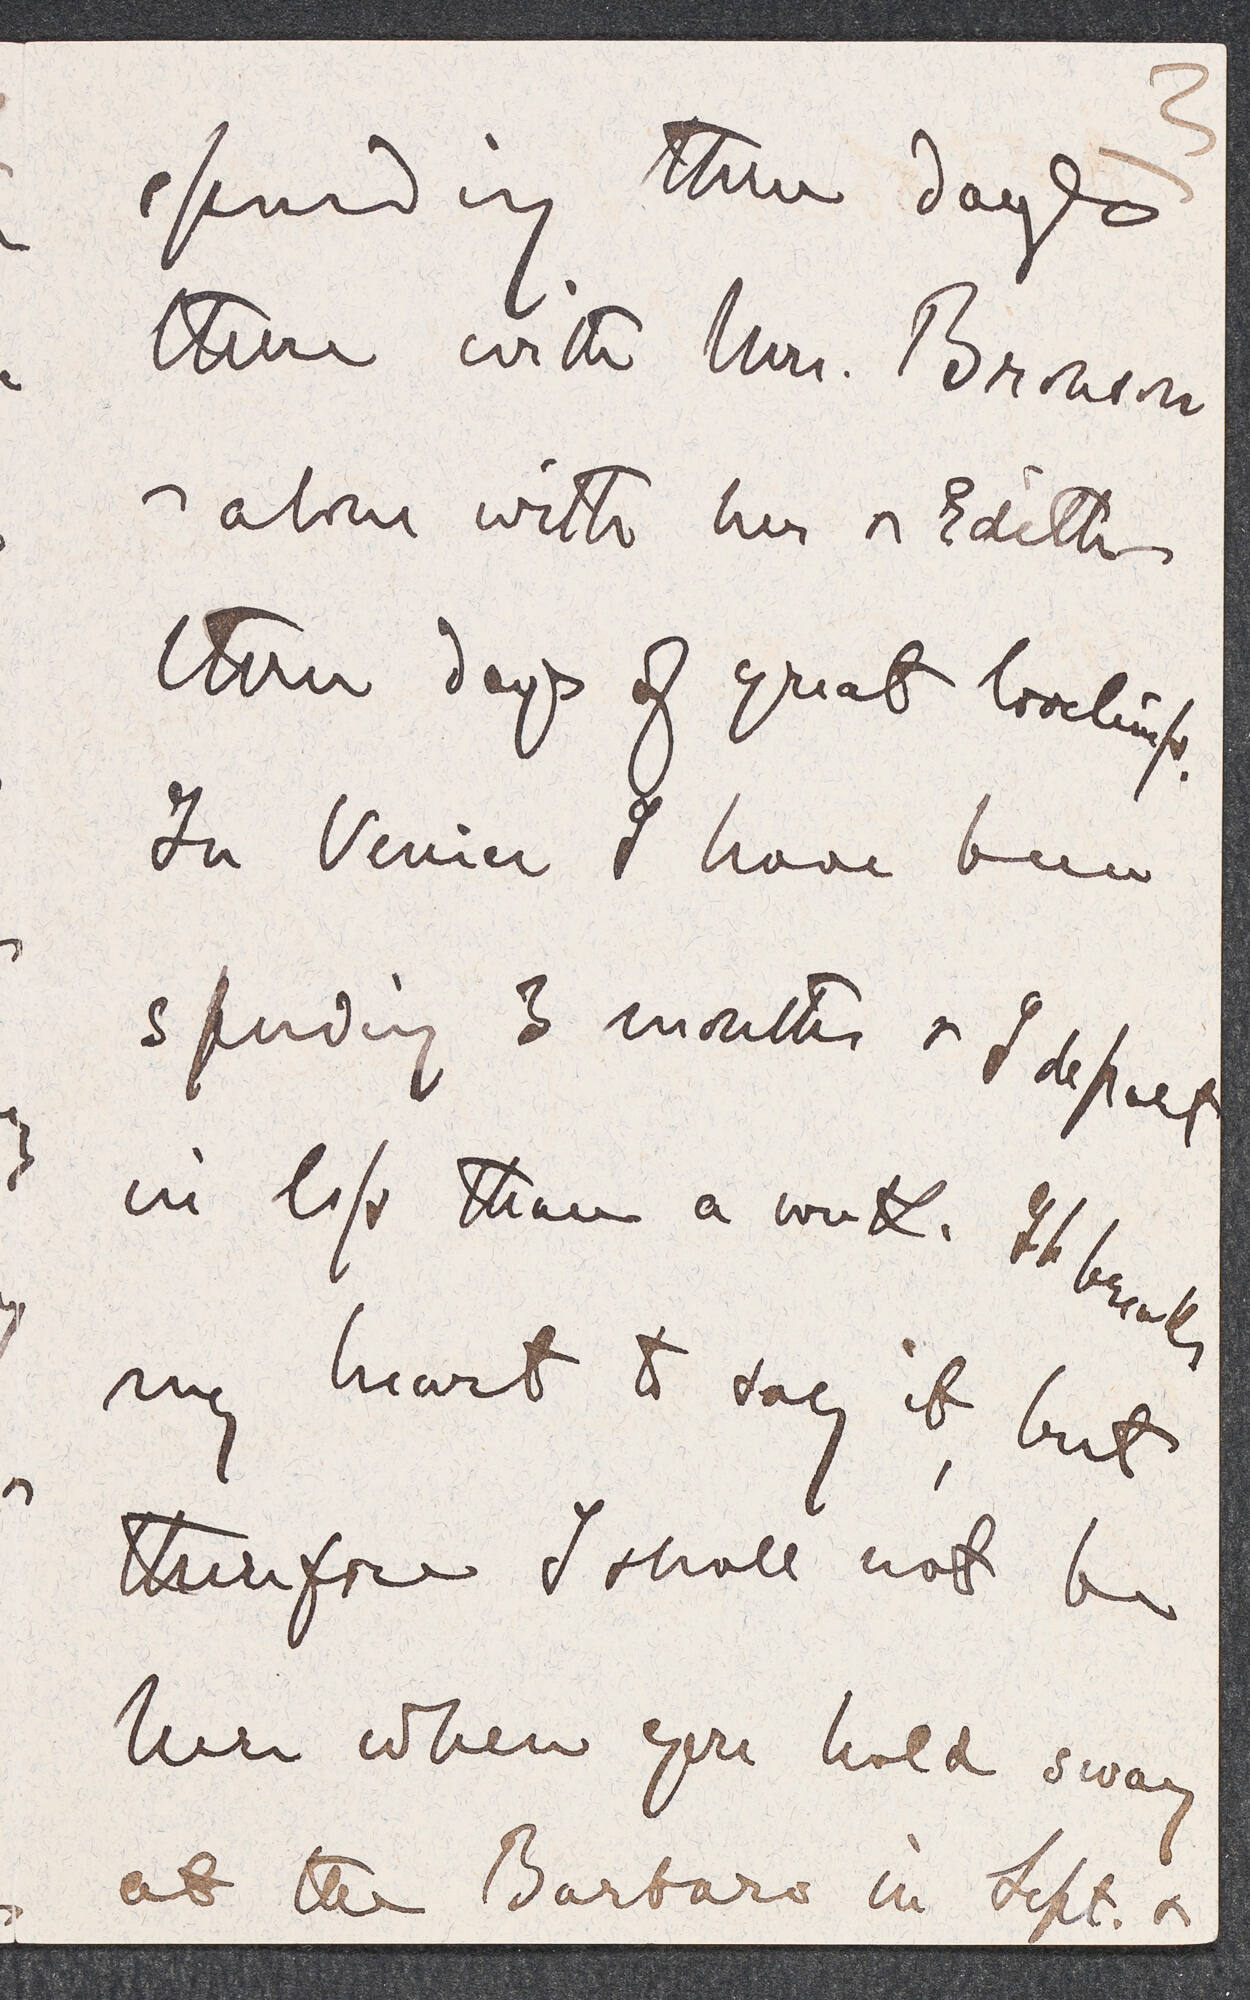 3
spending three days
there with Mrs. Bronson
& alone with her & Edith
three days of great loveliness.
In Venice I have been
spending 3 months & I depart
in less than a week. It breaks
my heart to say it, but
therefore I shall not be
here when you hold sway
at the Barbaro in Sept. &